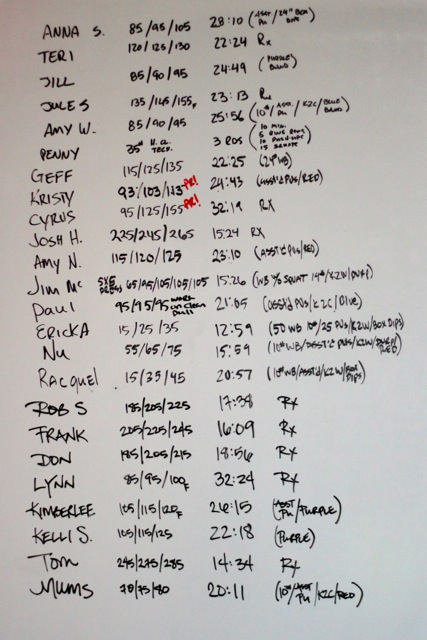 ANNA S. 85/95/105 28:10 (ASST. PU / 24" BOX DIPS)
TERI 120/125/130 22:24 Rx
JILL 85/90/95 24:49 (PURPLE BAND)
JULES 135/145/155F 23:13 Rx
AMY W. 85/90/95 25:56 (10#/ASST. PU/K2C/BLUE BAND)
PENNY 35# TECH. 3 RDS (10 MIN. 5 10 15
GEFF 115/125/135 22:25 (24" WB)
KRISTY 93/103/113 PR! 24:43 (ASST'D PUS/RED)
CYRUS 95/125/155 PR! 32:19 RX
JOSH H. 225/245/265 15:24 RX
AMY N. 115/120/125 23:10 (ASST'D PUS/RED)
JIM MC 65/95/105/105/105 15:26 (WB SQUAT 14#/K2W/
PAUL 95/95/95 WORK ON CLEAN PULL 21:05 (ASST'D PUS/K2C/
ERICKA 15/25/35 12:59 (50 WB 10#/25 PUS/K2W/BOX DIPS)
NU 55/65/75 15:59 (10# WB/ASST'D PUS/K2W/ RED)
RACQUEL 15/35/45 20:57 (10# WB/ASST'D/K2W/BOX DIPS)
ROB S 185/205/225 17:38 Rx
FRANK 205/225/245 16:09 Rx
DON 185/205/215 18:56 Rx
LYNN 85/95/100F 32:24 Rx
KIMBERLEE 105/115/120F 26:15 (ASST PU/PURPLE)
KELLI S. 105/115/125 22:18 (PURPLE)
TOM 245/275/285 14:34 Rx
MUMS 70/75/80 20:11 (10#/ASST PU/K2C/RED)